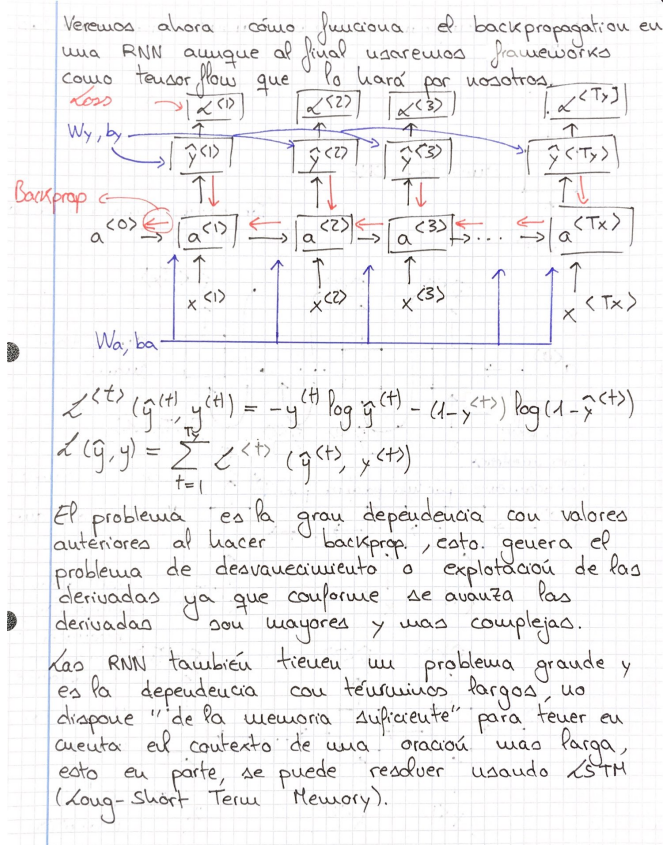 Veremos ahora cómo funciona el backpropagation en
una RNN aunque al final usaremos frameworks
como tensorflow que lo hará por nosotros.
Loss → ℒ<1> ℒ<2> ℒ<3> ℒ<Ty>
Wy, by
ŷ<1> ŷ<2> ŷ<3> ŷ<Ty>
Backprop
a<0> → a<1> → a<2> → a<3> → ... → a<Tx>
x<1> x<2> x<3> x<Tx>
Wa, ba
ℒ<t> (ŷ(t), y(t)) = -y(t) log ŷ(t) - (1-y<t>) log(1-ŷ<t>)
ℒ(ŷ, y) = Σ t=1 Ty ℒ<t> (ŷ<t>, y<t>)
El problema es la gran dependencia con valores
anteriores al hacer backprop., esto genera el
problema de desvanecimiento o explotación de las
derivadas ya que conforme se avanza las
derivadas son mayores y mas complejas.
Las RNN también tienen un problema grande y
es la dependencia con términos largos, no
dispone "de la memoria suficiente" para tener en
cuenta el contexto de una oración más larga,
esto en parte, se puede resolver usando LSTM
(Long-Short Term Memory).